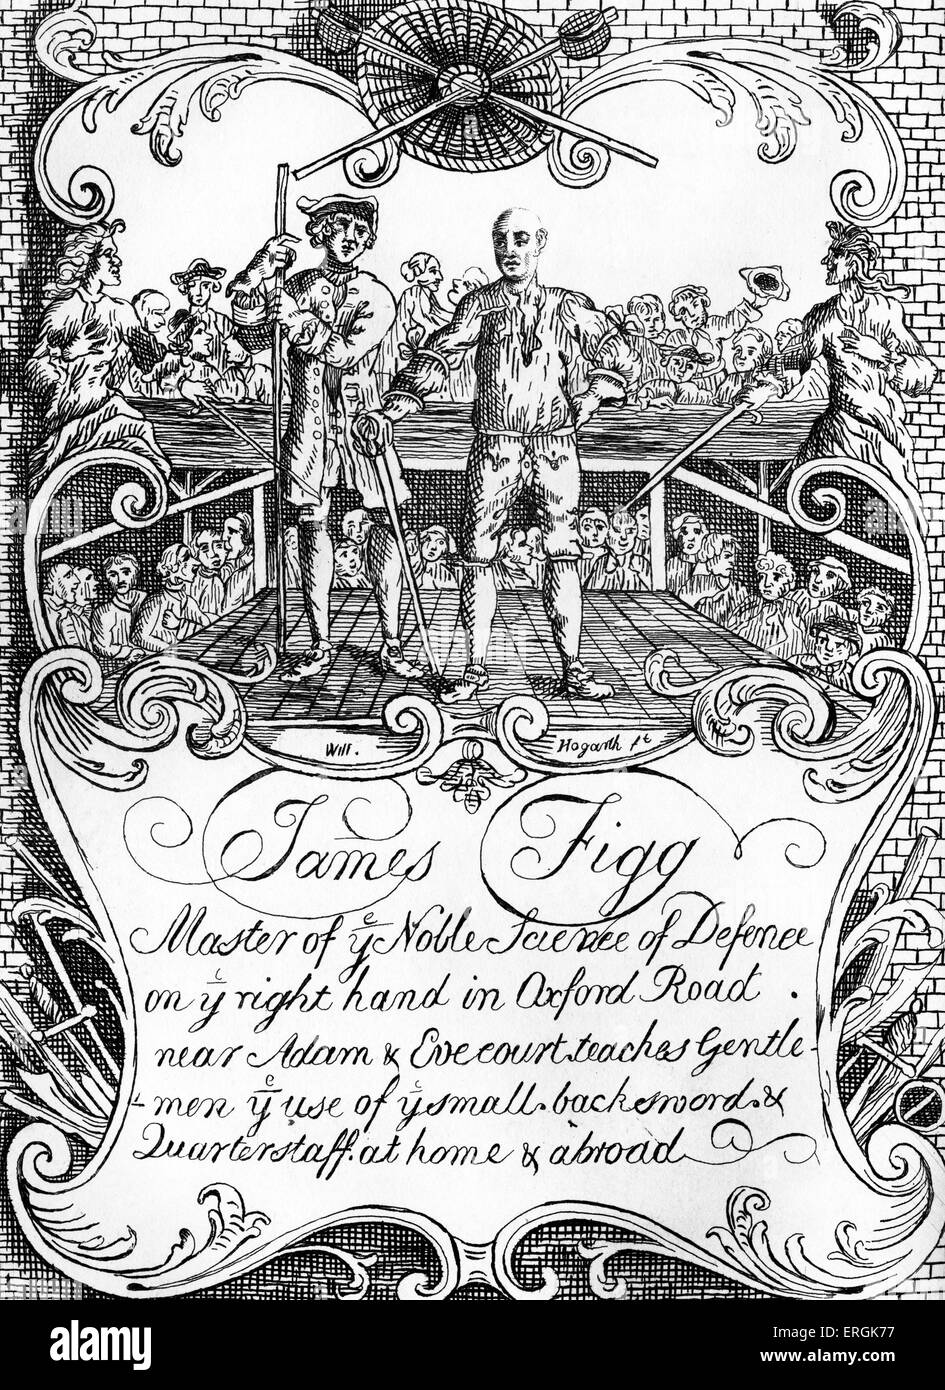 Will. Hogarth ft
James Figg
Master of ye Noble Science of Defence
on ye right hand in Oxford Road.
near Adam & Eve court. teaches Gentle-
-men ye use of ye small. backsword. &
Quarterstaff. at home & abroad
alamy
Image ID: ERGK77
www.alamy.com